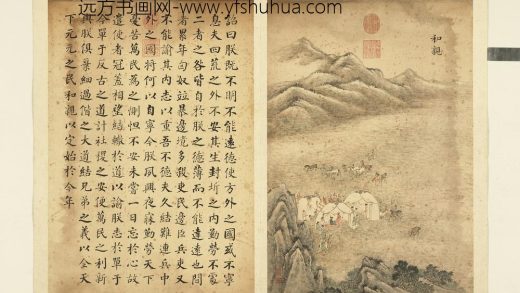 远方书画网-www.yfshuhua.com
和親
詔曰朕既不明不能遠德使方外之國或不寧
息夫四荒之外不安其生封圻之内勤勞不處
二者之咎皆自於朕之德薄而不能達遠也間
者累年匈奴並暴邊境多殺吏民邊臣兵吏又
不能諭其内志以重吾不德夫久結難連兵中
外之國將何以自寧今朕夙興夜寐勤勞天下
憂苦萬民為之惻怛不安未嘗一日忘於心故
遣使者冠蓋相望結轍於道以諭朕志於單于
今單于反古之道計社稷之安便萬民之利新
與朕俱棄細過偕之大道結兄弟之義以全天
下元元之民和親以定始於今年